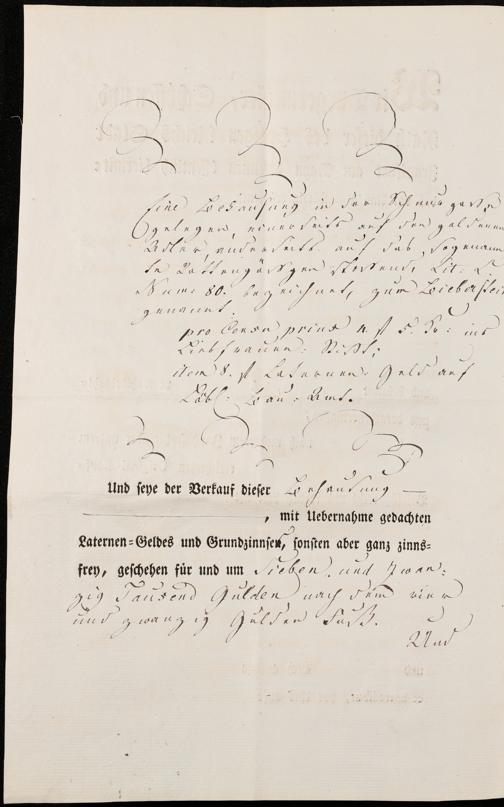 Eine Behausung in der Schnurgasse
gelegen, einerseits auf den goldenen
Adler, anderseits auf das sogenann
te Rattengäßgen stossend, Lit: L.
Num: 80. bezeichnet, zum Bieberstein
genannt.
pro Censu prius 4 fl 5. Kr: ins
Liebfrauen: Stift;
item 8. fl Laternen: Geld auf
Löbl: Bau: Amt.
Und seye der Verkauf dieser Behausung —
, mit Uebernahme gedachten
Laternen=Geldes und Grundzinnses, sonsten aber ganz zinns=
frey, geschehen für und um Sieben und zwan:
zig Tausend Gulden nach dem vier
und zwanzig Gulden Fuß.
Und